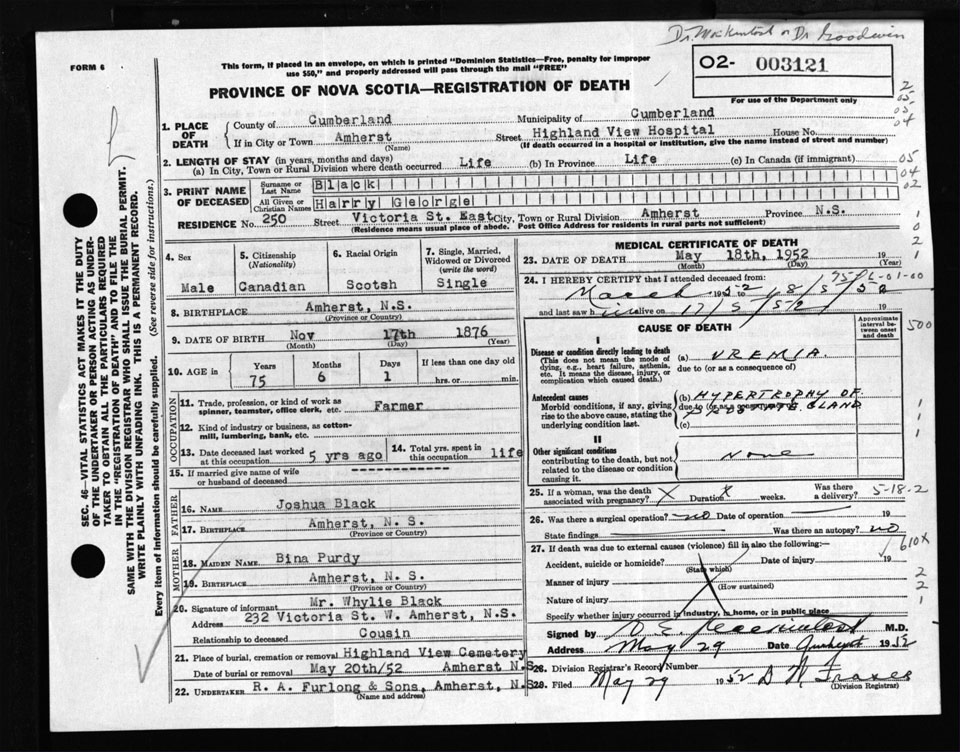 Dr. MacKintosh or Dr Goodwin
FORM 6
This form, if placed in an envelope, on which is printed "Dominion Statistics—Free, penalty for improper
use $50," and properly addressed will pass through the mail "FREE"
02- 003121
For use of the Department only
PROVINCE OF NOVA SCOTIA—REGISTRATION OF DEATH
2
05-
05-
04
1. PLACE OF DEATH
County of Cumberland Municipality of Cumberland
If in City or Town Amherst Street Highland View Hospital House No.
(Name) (If death occurred in a hospital or institution, give the name instead of street and number)
2. LENGTH OF STAY (in years, months and days)
(a) In City, Town or Rural Division where death occurred Life (b) In Province Life (c) In Canada (if immigrant)
05
04
02
3. PRINT NAME OF DECEASED
Surname or Last Name Black
All Given or Christian Names Harry George
RESIDENCE No. 250 Street Victoria St. East City, Town or Rural Division Amherst Province N.S.
(Residence means usual place of abode. Post Office Address for residents in rural parts not sufficient)
1
0
2
4. Sex
Male
5. Citizenship
(Nationality)
Canadian
6. Racial Origin
Scotsh
7. Single, Married,
Widowed or Divorced
(write the word)
Single
8. BIRTHPLACE Amherst, N.S.
(Province or Country)
9. DATE OF BIRTH Nov 17th 1876
(Month) (Day) (Year)
10. AGE in
Years Months Days If less than one day old
75 6 1 hrs. or min.
OCCUPATION
11. Trade, profession, or kind of work as
spinner, teamster, office clerk, etc. Farmer
12. Kind of industry or business, as cotton-
mill, lumbering, bank, etc.
13. Date deceased last worked
at this occupation 5 yrs ago
14. Total yrs. spent in
this occupation life
15. If married give name of wife
or husband of deceased
FATHER
16. Name Joshua Black
17. Birthplace Amherst, N. S.
(Province or Country)
MOTHER
18. Maiden Name Bina Purdy
19. Birthplace Amherst, N. S.
(Province or Country)
20. Signature of informant Mr. Whylie Black
Address 232 Victoria St. W. Amherst, N.S.
Relationship to deceased Cousin
21. Place of burial, cremation or removal Highland View Cemetery
Date of burial or removal May 20th/52 Amherst N.S
22. Undertaker R. A. Furlong & Sons, Amherst, N.S
(Name and address)
MEDICAL CERTIFICATE OF DEATH
23. DATE OF DEATH May 18th, 1952 19
(Month) (Day) (Year)
24. I HEREBY CERTIFY that I attended deceased from:
March 1952 to 18/5/52
and last saw h im alive on 17/5/52 19
CAUSE OF DEATH
Approximate
interval be-
tween onset
and death
500
I
Disease or condition directly leading to death
(This does not mean the mode of
dying, e.g., heart failure, asthenia,
etc. It means the disease, injury, or
complication which caused death.)
(a) UREMIA
due to (or as a consequence of)
Antecedent causes
Morbid conditions, if any, giving
rise to the above cause, stating the
underlying condition last.
(b) HYPERTROPHY OF
due to (or as a consequence of)
PROSTATE GLAND
(c)
1
1
1
II
Other significant conditions
contributing to the death, but not
related to the disease or condition
causing it.
None
25. If a woman, was the death
associated with pregnancy? X Duration X weeks. Was there
a delivery?
5-18-2
26. Was there a surgical operation? no Date of operation 19
State findings Was there an autopsy? no
27. If death was due to external causes (violence) fill in also the following:—
610X
Accident, suicide or homicide? Date of injury 19
(State which)
Manner of injury
(How sustained)
Nature of injury
2
2
1
Specify whether injury occurred in industry, in home, or in public place
Signed by M.D.
Address May 29 Date Amherst 1952
28. Division Registrar's Record Number
29. Filed May 29 1952
(Division Registrar)
SEC. 46—VITAL STATISTICS ACT MAKES IT THE DUTY
OF THE UNDERTAKER OR PERSON ACTING AS UNDER-
TAKER TO OBTAIN ALL THE PARTICULARS REQUIRED
IN THE "REGISTRATION OF DEATH" AND TO FILE THE
SAME WITH THE DIVISION REGISTRAR WHO SHALL ISSUE THE BURIAL PERMIT.
WRITE PLAINLY WITH UNFADING INK. THIS IS A PERMANENT RECORD.
Every item of information should be carefully supplied. (See reverse side for instructions.)